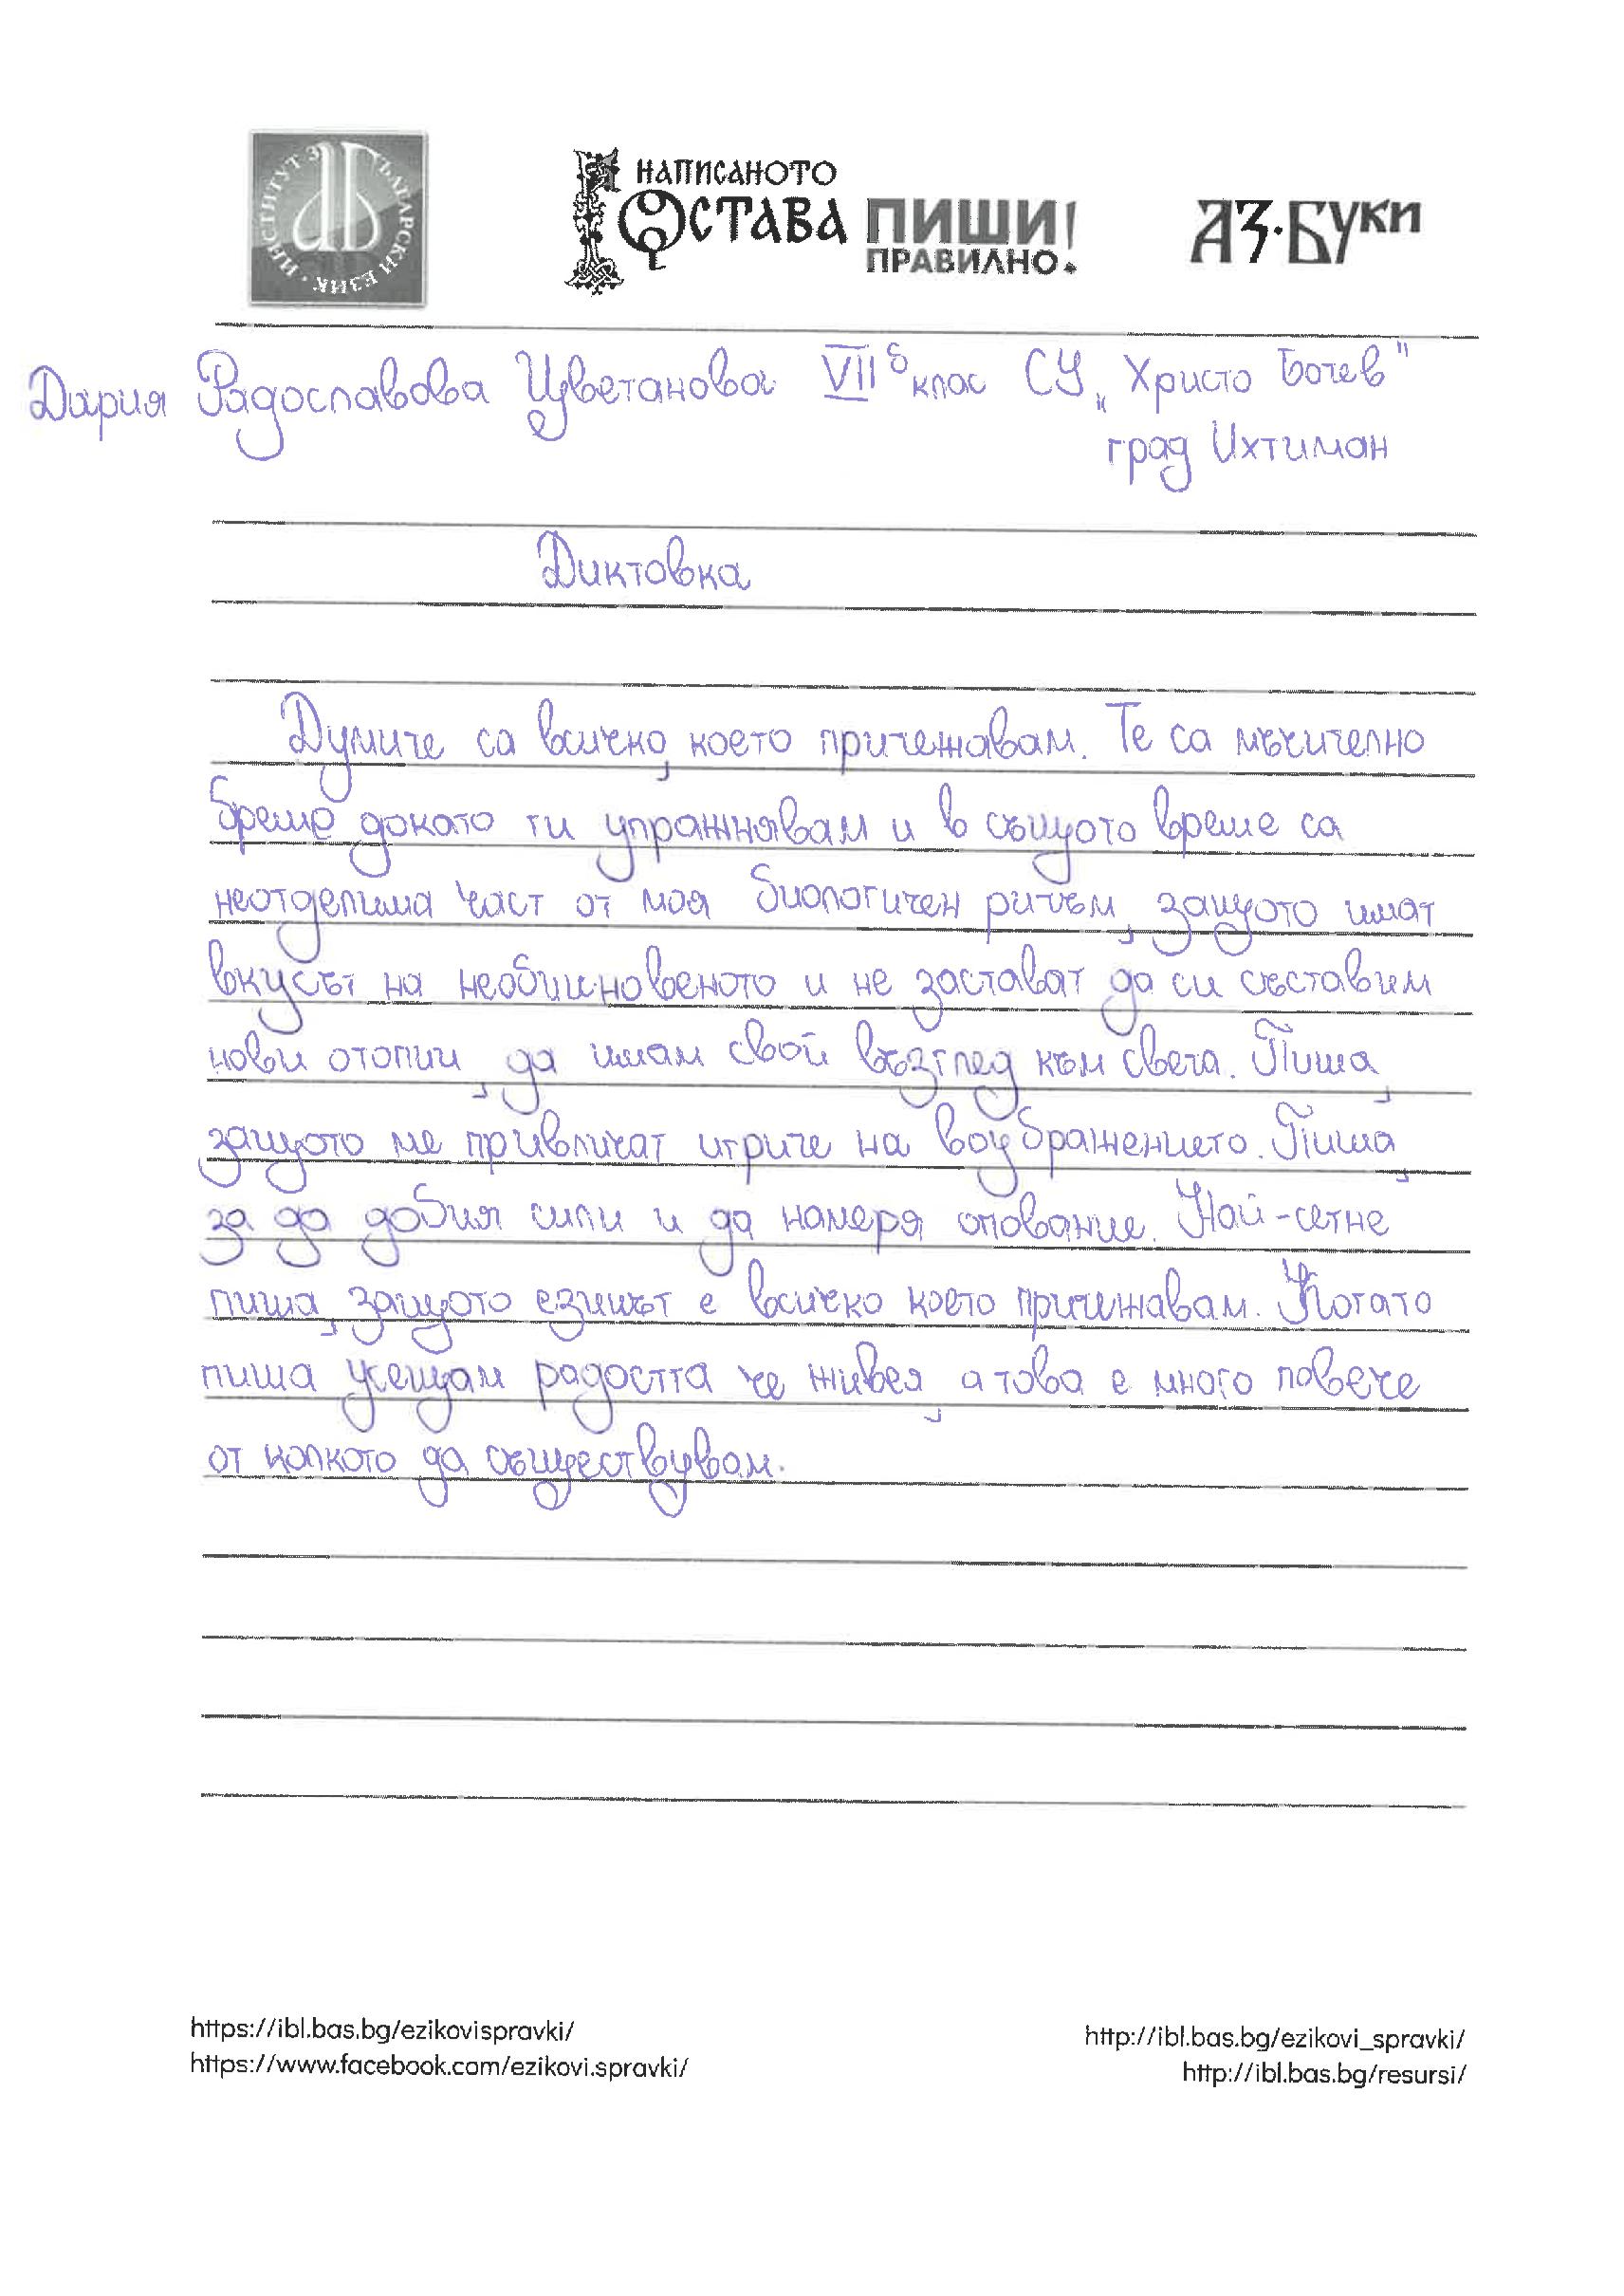 ИНСТИТУТ ЗА БЪЛГАРСКИ ЕЗИК
НАПИСАНОТО
ОСТАВА ПИШИ!
ПРАВИЛНО.
АЗ·БУКИ
Дария Радославова Цветанова VII б клас СУ „Христо Ботев"
град Ихтиман
Диктовка
Думите са всичко, което притежавам. Те са мъчително
бреме докато ги упражнявам и в същото време са
неотделима част от моя биологичен ритъм, защото имат
вкусът на необикновеното и не заставят да си съставим
нови отопии, да имам свой възглед към света. Пиша,
защото ме привличат игрите на воубражението. Пиша,
за да добия сили и да намеря опование. Най-сетне
пиша, защото езикът е всичко което притежавам. Когато
пиша усещам радостта че живея, а това е много повече
от колкото да съществувам.
https://ibl.bas.bg/ezikovispravki/
https://www.facebook.com/ezikovi.spravki/
http://ibl.bas.bg/ezikovi_spravki/
http://ibl.bas.bg/resursi/